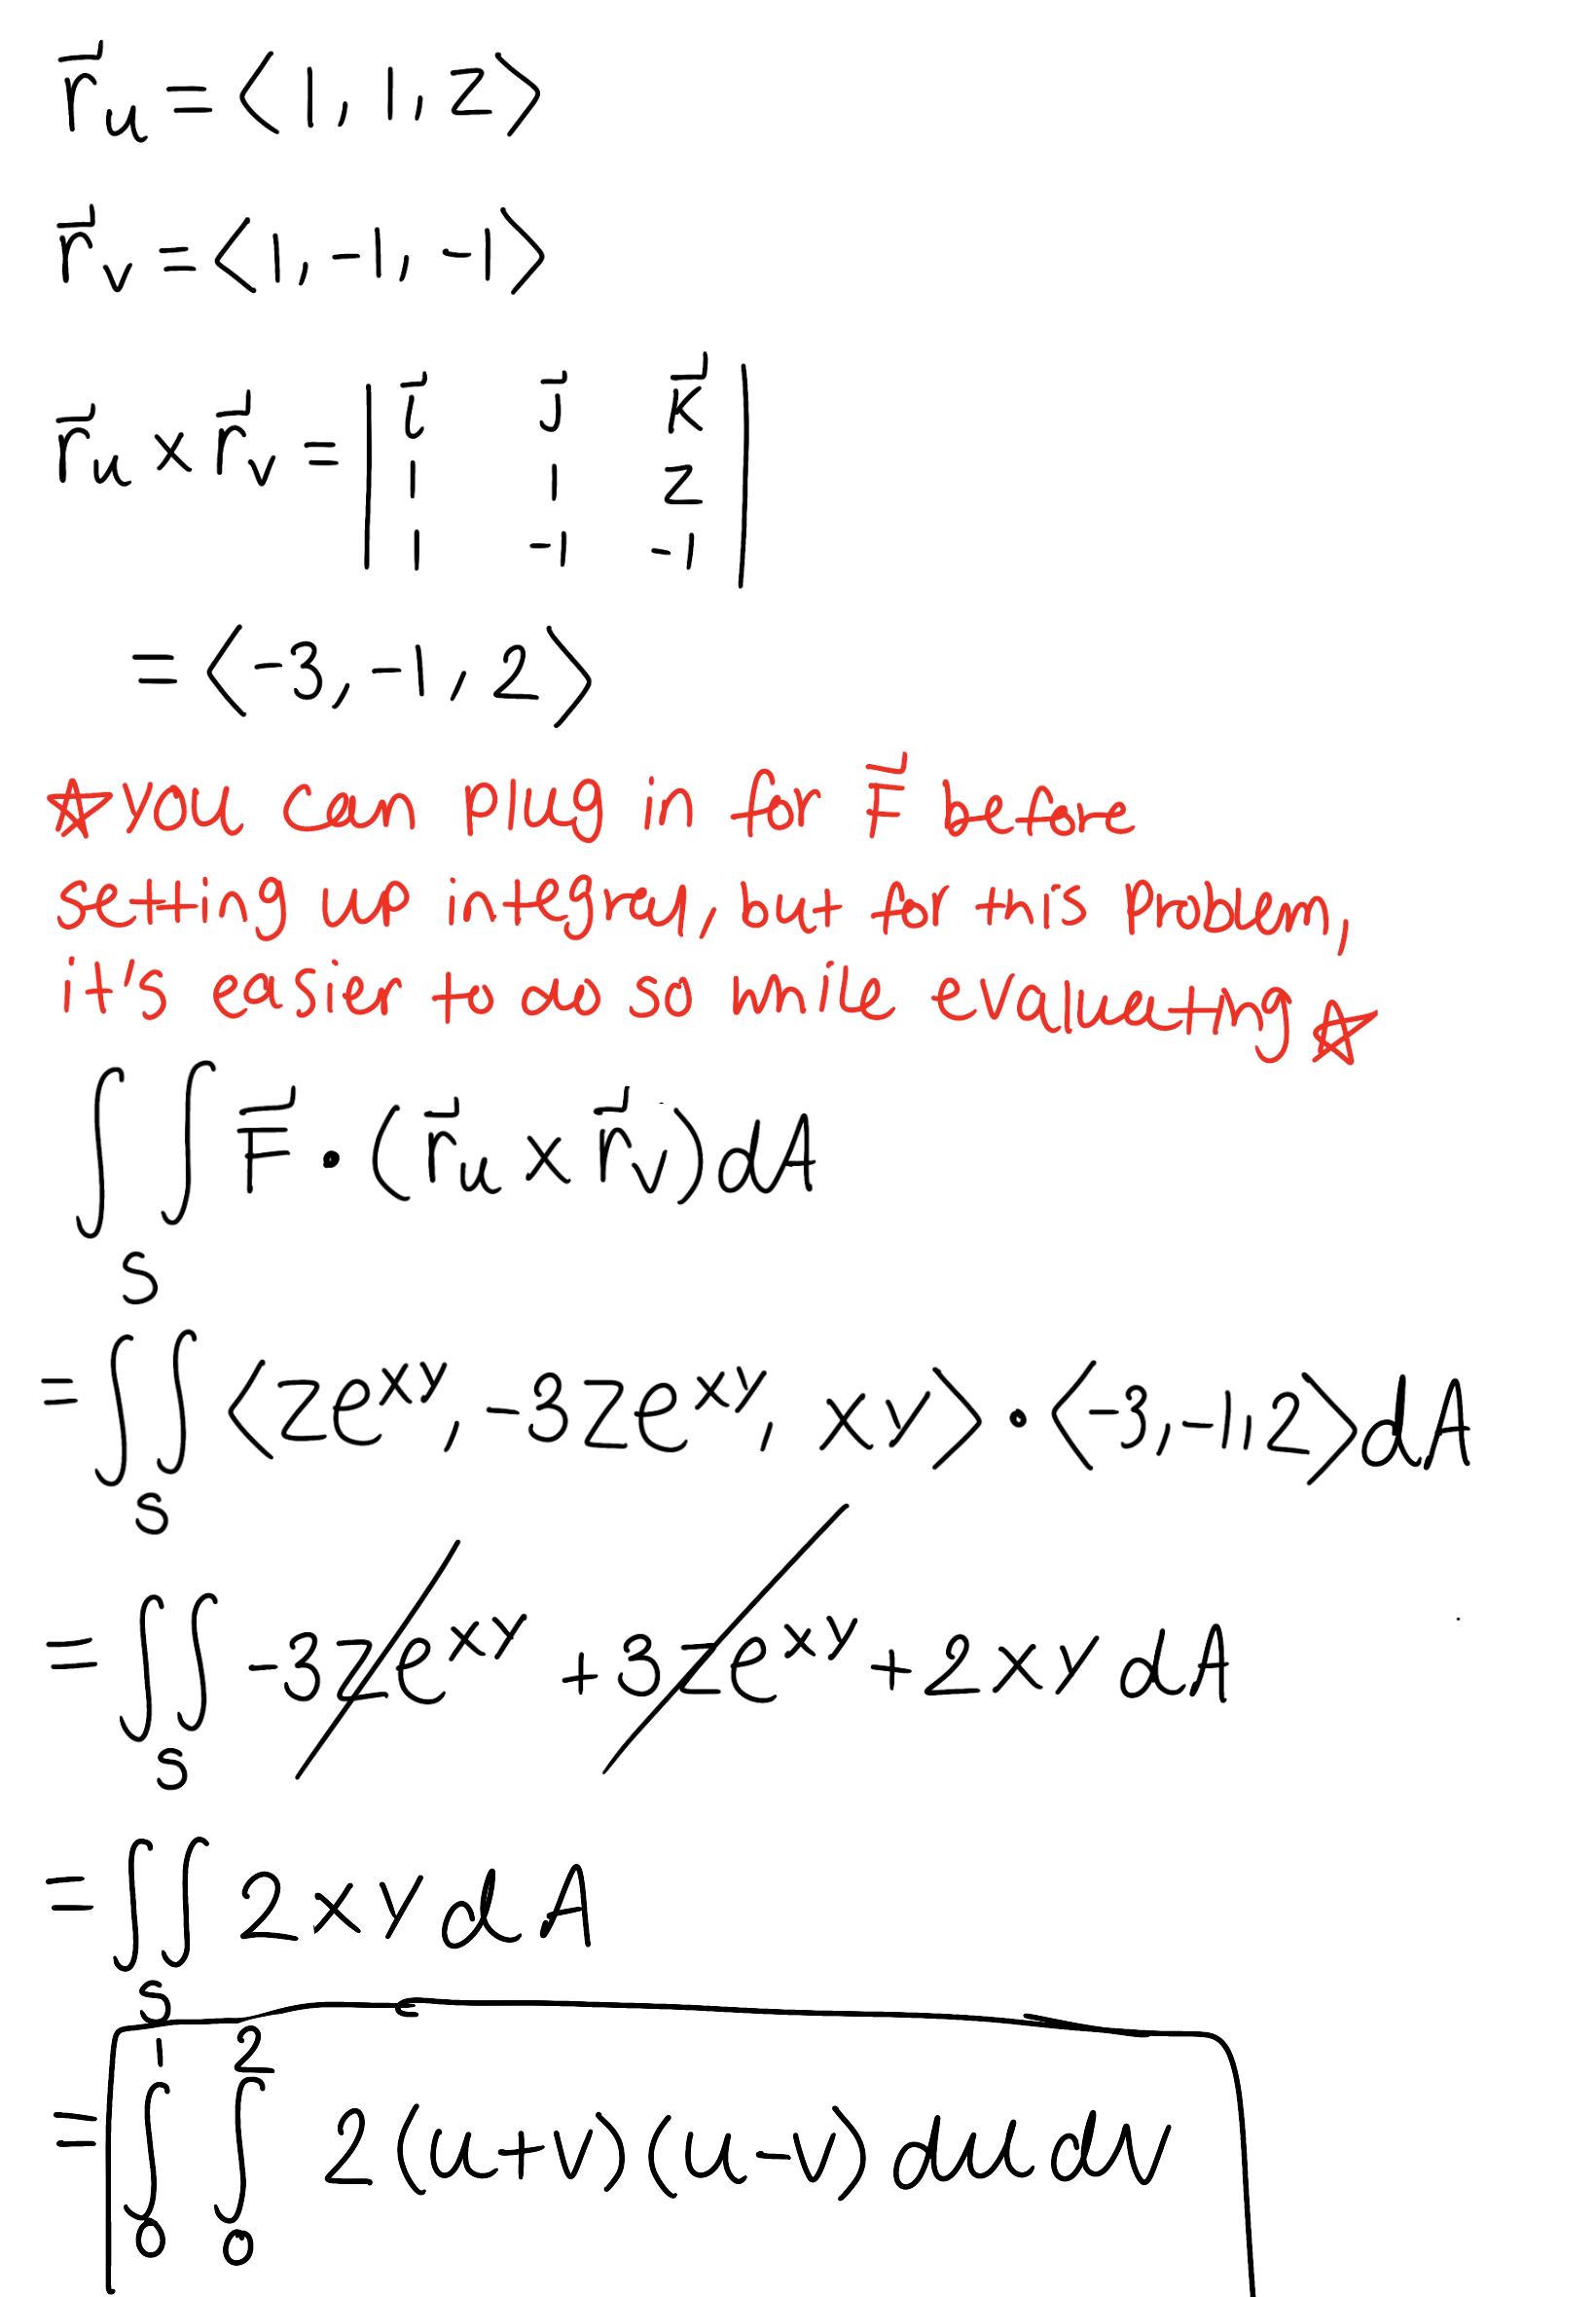 r⃗ᵤ = ⟨1, 1, z⟩
r⃗ᵥ = ⟨1, -1, -1⟩
r⃗ᵤ × r⃗ᵥ = | i⃗ j⃗ k⃗ |
| 1 1 z |
| 1 -1 -1 |
= ⟨-3, -1, 2⟩
☆ you can plug in for F⃗ before
setting up integral, but for this problem,
it's easier to do so while evaluating ☆
∫∫_S F⃗ • (r⃗ᵤ × r⃗ᵥ) dA
= ∫∫_S ⟨ze^{xy}, -3ze^{xy}, xy⟩ • ⟨-3, -1, 2⟩ dA
= ∫∫_S -3ze^{xy} + 3ze^{xy} + 2xy dA
= ∫∫_S 2xy dA
= ∫_0^1 ∫_0^2 2(u+v)(u-v) du dv